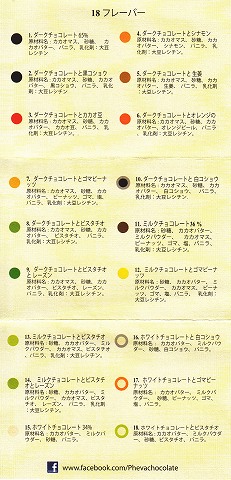 18 フレーバー
1. ダークチョコレート 65%
原材料名：カカオマス、砂糖、カカオバター、バニラ、乳化剤：大豆レシチン
4. ダークチョコレートとシナモン
原材料名：カカオマス、砂糖、カカオバター、シナモン、バニラ、乳化剤：大豆レシチン。
2. ダークチョコレートと黒コショウ
原材料名：カカオマス、砂糖、カカオバター、黒コショウ、バニラ、乳化剤：大豆レシチン。
5. ダークチョコレートと生姜
原材料名：カカオマス、砂糖、カカオバター、生姜、バニラ、乳化剤：大豆レシチン。
3. ダークチョコレートとカカオ豆
原材料名：カカオマス、砂糖、カカオバター、カカオ豆、バニラ、乳化剤：大豆レシチン。
6. ダークチョコレートとオレンジの
原材料名：カカオマス、砂糖、カカオバター、オレンジピール、バニラ、乳化剤：大豆レシチン。
7. ダークチョコレートとゴマピーナッツ
原材料名：カカオマス、砂糖、カカオバター、ピーナッツ、ゴマ、塩、バニラ、乳化剤：大豆レシチン。
10. ダークチョコレートと白コショウ
原材料名：カカオマス、砂糖、カカオバター、白コショウ、バニラ、乳化剤：大豆レシチン。
8. ダークチョコレートとピスタチオ
原材料名：カカオマス、砂糖、カカオバター、ピスタチオ、バニラ、乳化剤：大豆レシチン。
11. ミルクチョコレート36 %
原材料名：砂糖、カカオバター、ミルクパウダー、カカオマス、ピーナッツ、ゴマ、塩、バニラ、乳化剤：大豆レシチン。
9. ダークチョコレートとピスタチオとレーズン
原材料名：カカオマス、砂糖、カカオバター、ピスタチオ、レーズン、バニラ、乳化剤：大豆レシチン。
12. ミルクチョコレートとゴマピーナッツ
原材料名：砂糖、カカオバター、ミルクパウダー、カカオマス、ピーナッツ、ゴマ、塩、バニラ、乳化剤：大豆レシチン。
13. ミルクチョコレートとピスタチオ
原材料名：砂糖、カカオバター、ミルクパウダー、カカオマス、ピスタチオ、バニラ、乳化剤：大豆レシチン。
16. ホワイトチョコレートと白コショウ
原材料名：カカオバター、ミルクパウダー、砂糖、白コショウ、バニラ。
14. ミルクチョコレートとピスタチオとレーズン
原材料名：砂糖、カカオバター、ミルクパウダー、カカオマス、ピスタチオ、レーズン、バニラ、乳化剤：大豆レシチン。
17. ホワイトチョコレートとゴマピーナッツ
原材料名：カカオバター、ミルクパウダー、砂糖、ピーナッツ、ゴマ、塩、バニラ。
15. ホワイトチョコレート 34%
原材料名：カカオバター、ミルクパウダー、砂糖、バニラ。
18. ホワイトチョコレートとピスタチオ
原材料名：カカオバター、ミルクパウダー、砂糖、ピスタチオ、バニラ。
www.facebook.com/Phevachocolate